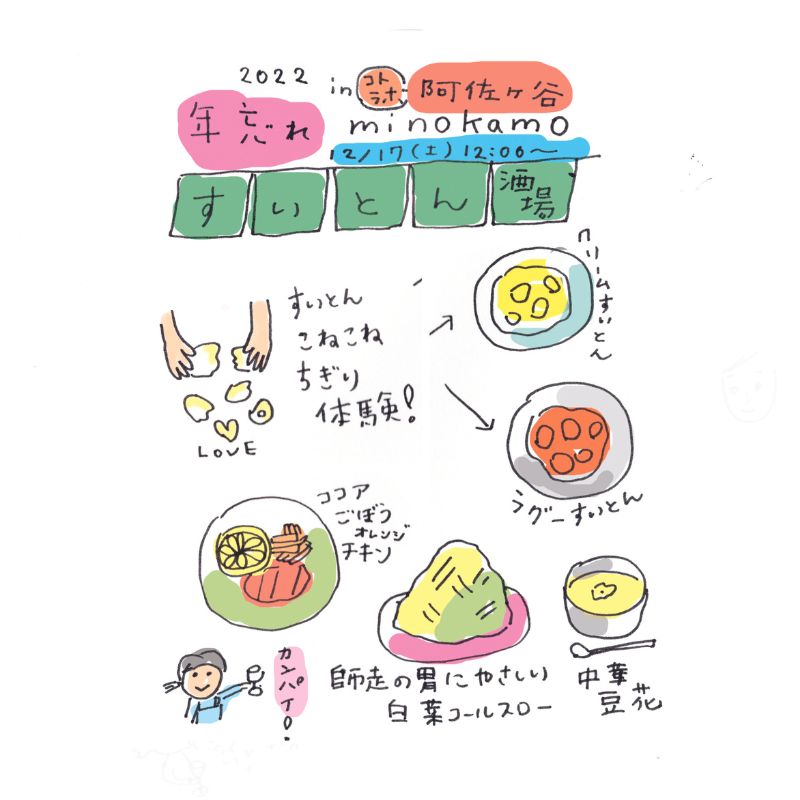 2022
in コトラボ 阿佐ヶ谷
年忘れ
minokamo
12/17(土)12:00〜
すいとん酒場
すいとん
こねこね
ちぎり
体験!
LOVE
クリームすいとん
ラグーすいとん
ココア
ごぼう
オレンジ
チキン
カンパイ!
師走の胃にやさしい
白菜コールスロー
中華
豆花